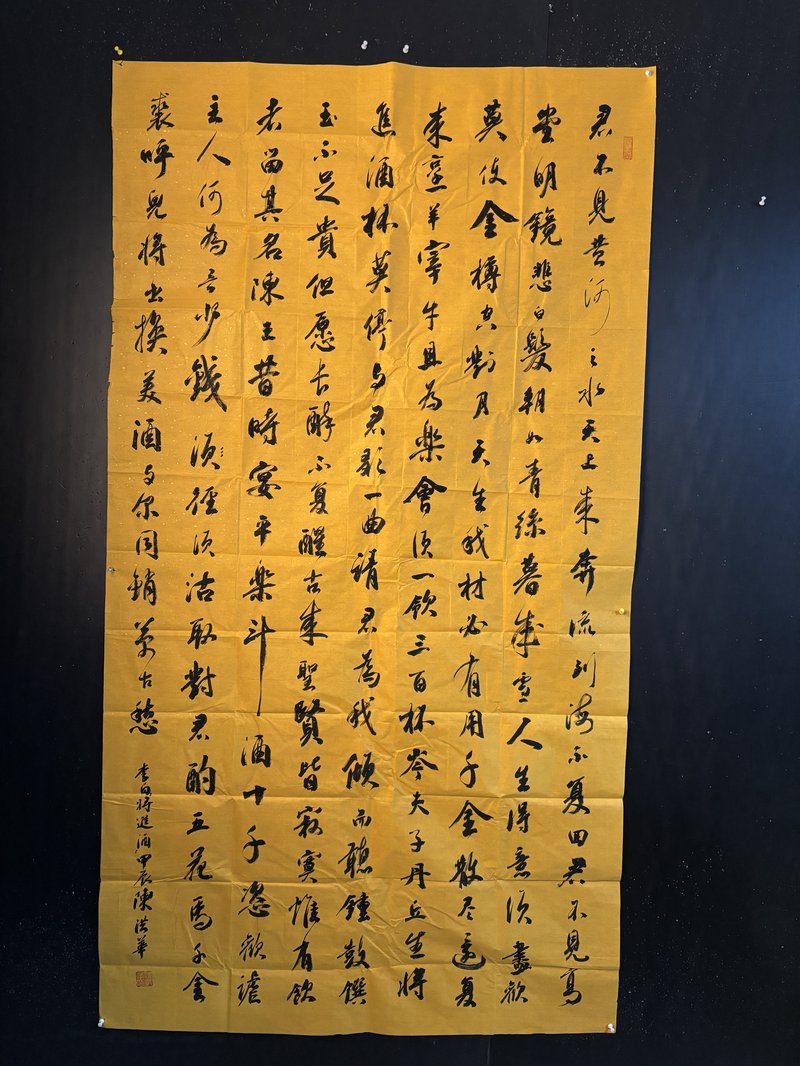 君不見黄河之水天上来奔流到海不复回君不見高
堂明鏡悲白髮朝如青絲暮成雪人生得意须盡歡
莫使金樽空對月天生我材必有用千金散尽還复
来烹羊宰牛且為樂會须一飲三百杯岑夫子丹丘生將
進酒杯莫停与君歌一曲請君為我傾而聽鍾鼓饌
玉不足貴但愿长醉不复醒古来聖賢皆寂寞惟有飲
者留其名陳王昔時宴平樂斗酒十千恣歡謔
主人何為言少錢须徑须沽取對君酌五花馬千金
裘呼兒將出換美酒与尔同銷萬古愁
李白將進酒甲辰陳洪華